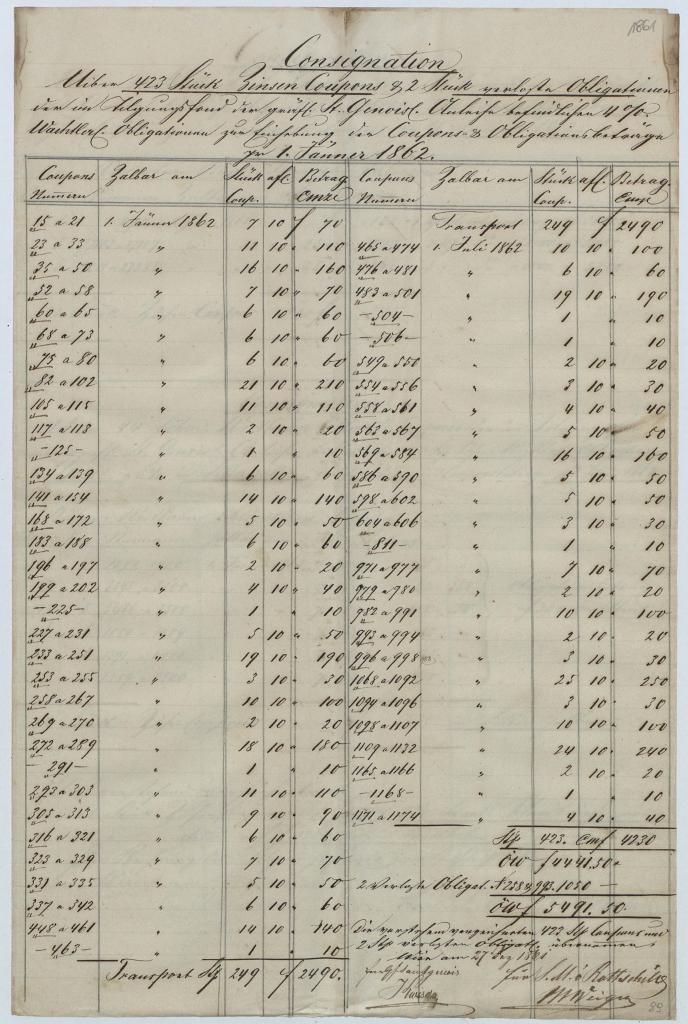 1861
Consignation
Uiber 423 Stück Zinsen Coupons & 2 Stück verloste Obligationen
der im Tilgungsfond der gräfl. St. Genois'. Anleihe befindlichen 4 %
Obligationen zur Einhebung der Coupons- & Obligationsbeträge
pr 1. Jänner 1862.
Coupons Numern Zalbar am Stück Coup. afl. Betrag Cmze Coupons Numern Zalbar am Stück Coup. afl. Betrag Cmze
15 a 21 1. Jänner 1862 7 10 f 70 Transport 249 f 2490
23 a 33 " 11 10 " 110 465 a 474 1. Juli 1862 10 10 " 100
35 a 50 " 16 10 " 160 476 a 481 " 6 10 " 60
52 a 58 " 7 10 " 70 483 a 501 " 19 10 " 190
60 a 65 " 6 10 " 60 - 504 - " 1 " 10
68 a 73 " 6 10 " 60 - 506 - " 1 " 10
75 a 80 " 6 10 " 60 549 a 550 " 2 10 " 20
82 a 102 " 21 10 " 210 554 a 556 " 3 10 " 30
105 a 115 " 11 10 " 110 558 a 561 " 4 10 " 40
117 a 118 " 2 10 " 20 563 a 567 " 5 10 " 50
- 125 - " 1 " 10 569 a 584 " 16 10 " 160
134 a 139 " 6 10 " 60 586 a 590 " 5 10 " 50
141 a 154 " 14 10 " 140 598 a 602 " 5 10 " 50
168 a 172 " 5 10 " 50 604 a 606 " 3 10 " 30
183 a 188 " 6 10 " 60 - 811 - " 1 " 10
196 a 197 " 2 10 " 20 971 a 977 " 7 10 " 70
199 a 202 " 4 10 " 40 979 a 980 " 2 10 " 20
- 225 - " 1 " 10 982 a 991 " 10 10 " 100
227 a 231 " 5 10 " 50 993 a 994 " 2 10 " 20
233 a 251 " 19 10 " 190 996 a 998 " 3 10 " 30
253 a 255 " 3 10 " 30 1068 a 1092 " 25 10 " 250
258 a 267 " 10 10 " 100 1094 a 1096 " 3 10 " 30
269 a 270 " 2 10 " 20 1098 a 1107 " 10 10 " 100
272 a 289 " 18 10 " 180 1109 a 1132 " 24 10 " 240
- 291 - " 1 " 10 1165 a 1166 " 2 10 " 20
293 a 303 " 11 10 " 110 - 1168 - " 1 " 10
305 a 313 " 9 10 " 90 1171 a 1174 " 4 10 " 40
316 a 321 " 6 10 " 60 Stk 423. Cmf 4230
323 a 329 " 7 10 " 70 ÖW f 4441.50 "
331 a 335 " 5 10 " 50 2 Verloste Obligat. N 258 & 993. 1050 —
337 a 342 " 6 10 " 60 ÖW f 5491.50.
448 a 461 " 14 10 " 140 Die vorstehend verzeichneten 423 Stk Coupons und
- 463 - " 1 " 10 2 Stk verlosten Obligatt. übernommen
Wien am 27 Dez 1861
Transport Stk 249 f 2490. für S. M. v Rothschild